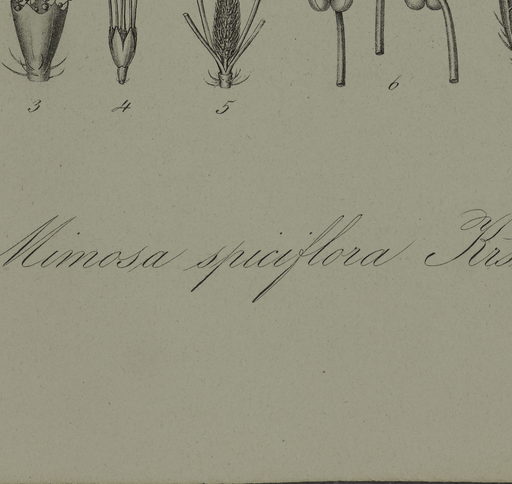 3 4 5 6
Mimosa spiciflora Krs